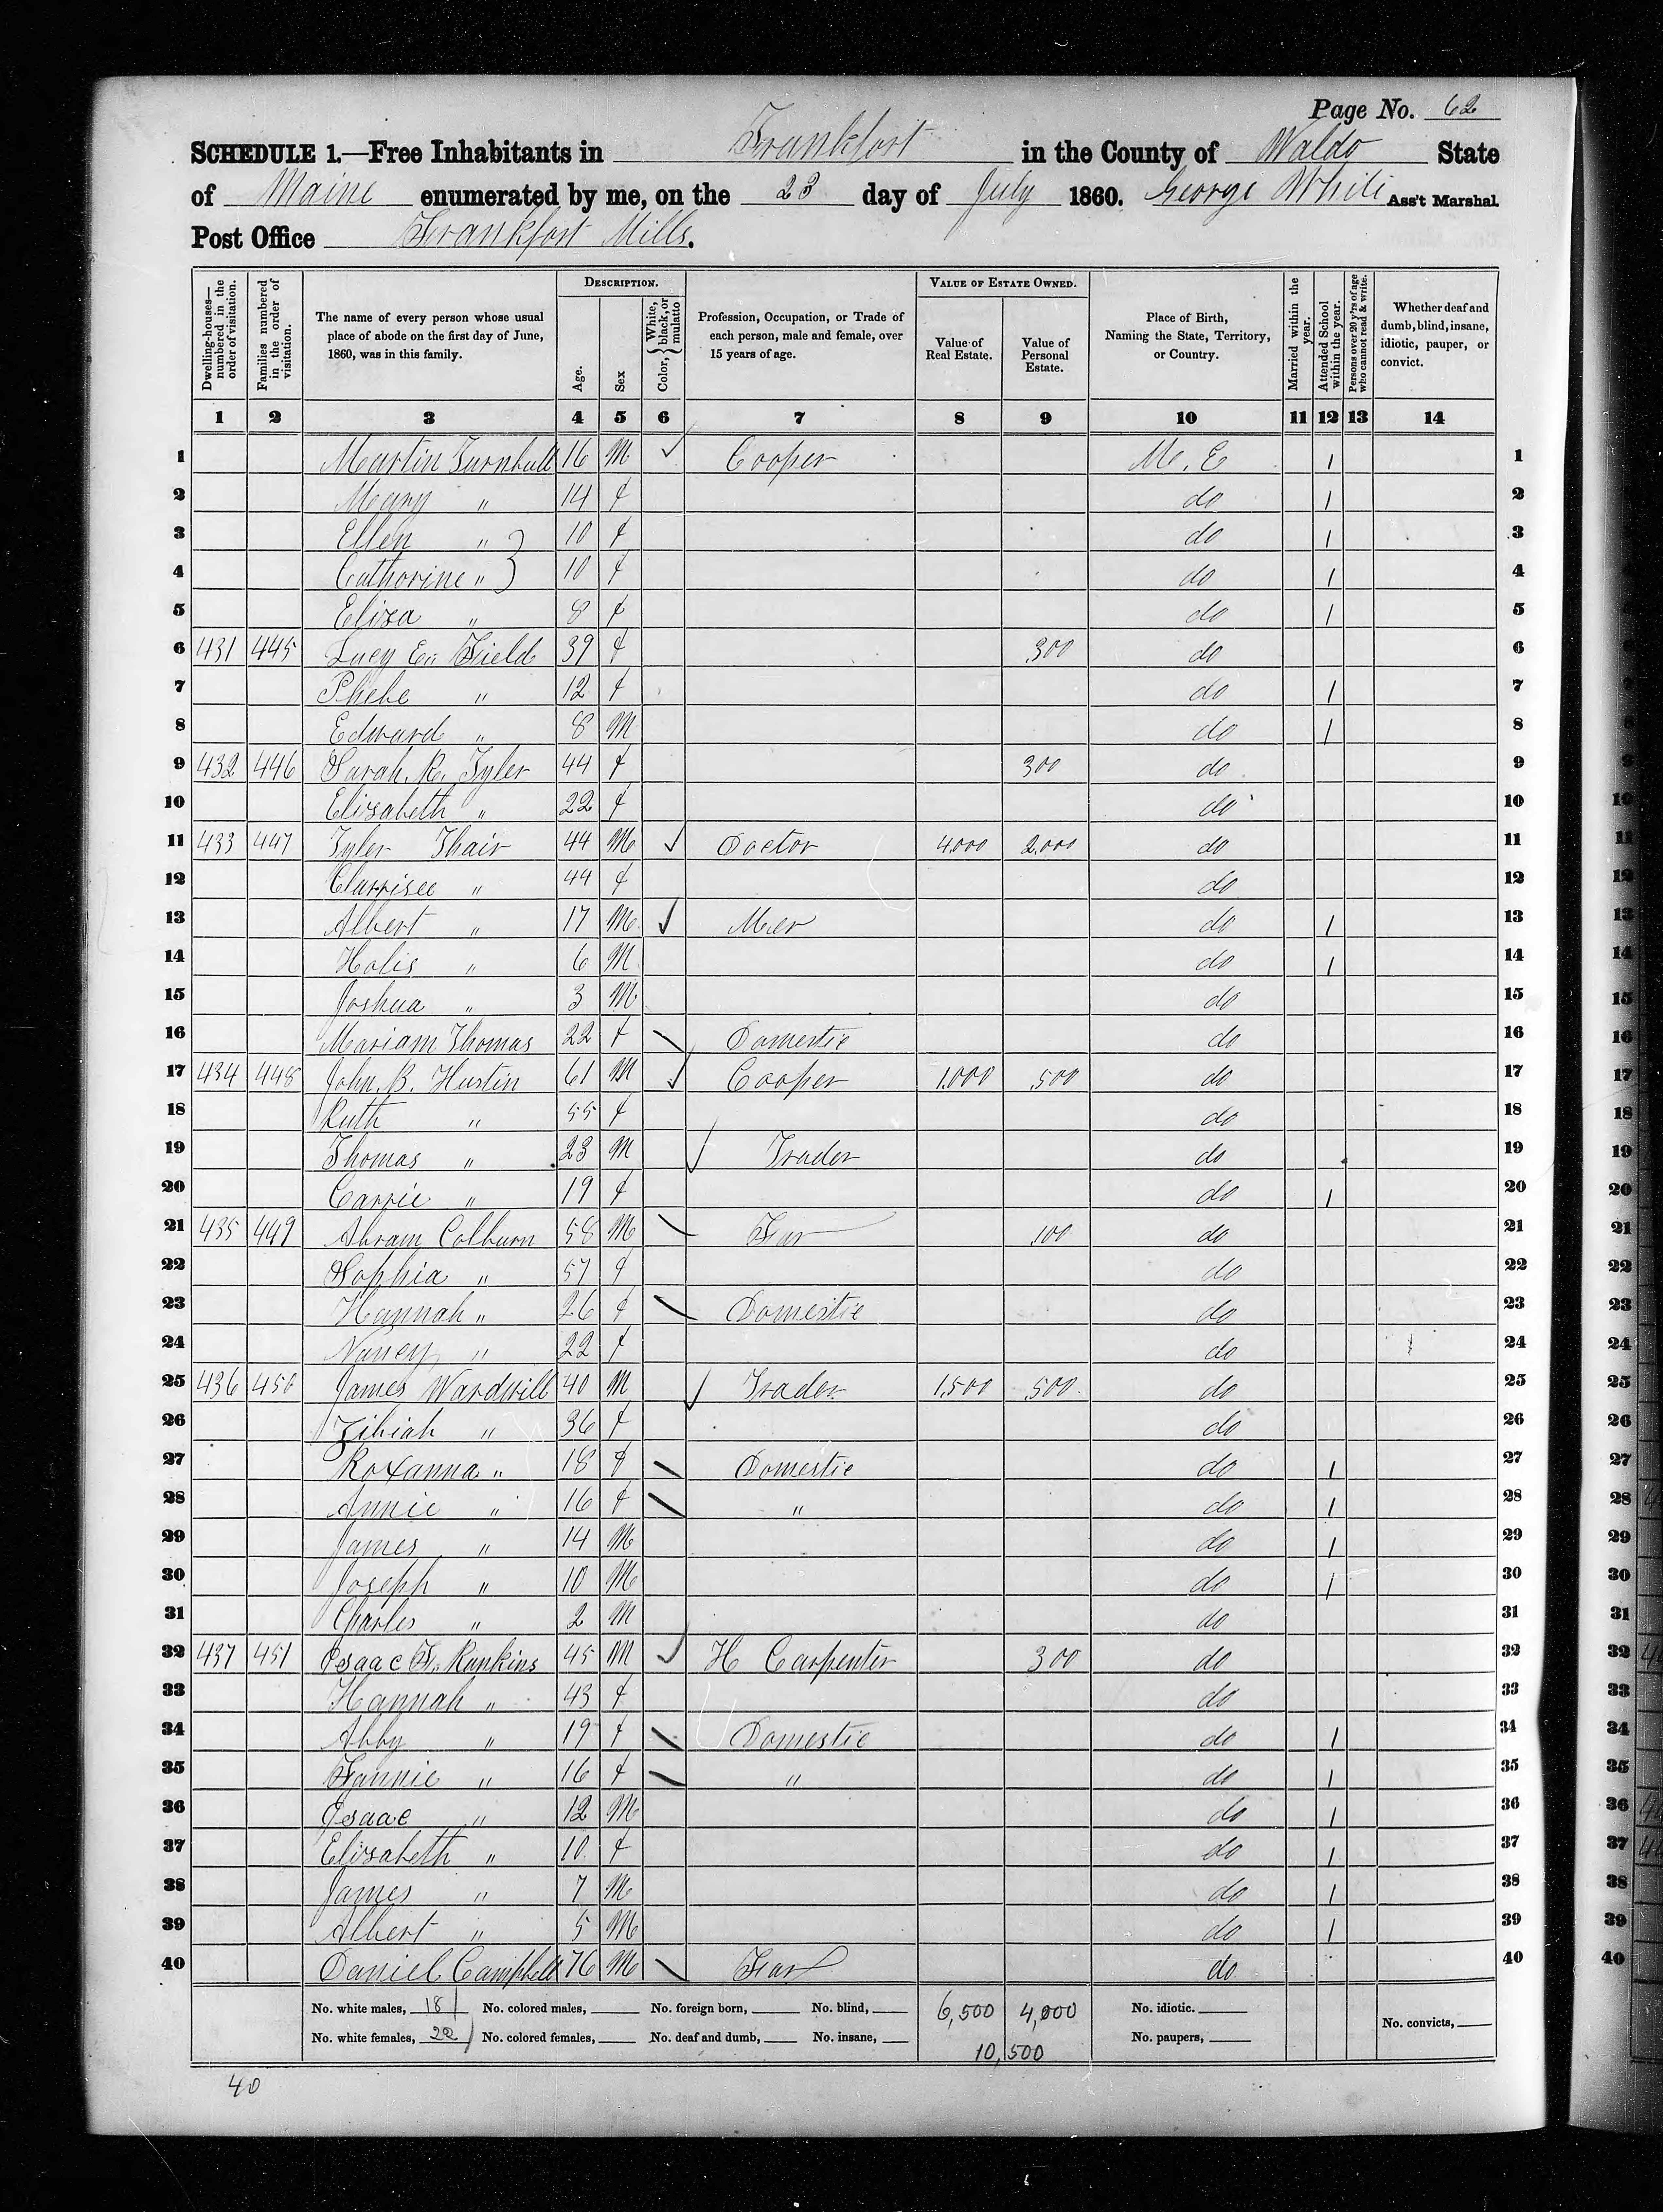 Page No. 62
SCHEDULE 1.—Free Inhabitants in Frankfort in the County of Waldo State
of Maine enumerated by me, on the 23 day of July 1860. George White Ass't Marshal.
Post Office Frankfort Mills.
Dwelling-houses—numbered in the order of visitation.
Families numbered in the order of visitation.
The name of every person whose usual place of abode on the first day of June, 1860, was in this family.
DESCRIPTION.
Age.
Sex
Color, { White, black, or mulatto
Profession, Occupation, or Trade of each person, male and female, over 15 years of age.
VALUE OF ESTATE OWNED.
Value of Real Estate.
Value of Personal Estate.
Place of Birth, Naming the State, Territory, or Country.
Married within the year.
Attended School within the year.
Persons over 20 y'rs of age who cannot read & write.
Whether deaf and dumb, blind, insane, idiotic, pauper, or convict.
1 2 3 4 5 6 7 8 9 10 11 12 13 14
1 Martin Turnbull 16 M ✓ Cooper M.E 1 1
2 Mary " 14 f do 1 2
3 Ellen " } 10 f do 1 3
4 Cathorine " } 10 f do 1 4
5 Eliza " 8 f do 1 5
6 431 445 Lucy E. Field 39 f 300 do 6
7 Phebe " 12 f do 1 7
8 Edward " 8 M do 1 8
9 432 446 Sarah. R. Tyler 44 f 300 do 9
10 Elizabeth " 22 f do 10
11 433 447 Tyler Thair 44 M ✓ Doctor 4,000 2,000 do 11
12 Clarrisee " 44 f do 12
13 Albert " 17 M ✓ Mer do 1 13
14 Holis " 6 M do 1 14
15 Joshua " 3 M do 15
16 Mariam Thomas 22 f \ Domestic do 16
17 434 448 John. B. Hustin 61 M ✓ Cooper 1,000 500 do 17
18 Ruth " 55 f do 18
19 Thomas " 23 M ✓ Trader do 19
20 Carrie " 19 f do 1 20
21 435 449 Abram Colburn 58 M \ Far 100 do 21
22 Sophia " 57 f do 22
23 Hannah " 26 f \ Domestic do 23
24 Nancy " 22 f do 24
25 436 450 James Wardwill 40 M ✓ Trader 1,500 500 do 25
26 Zibiah " 36 f do 26
27 Roxanna " 18 f \ Domestic do 1 27
28 Annie " 16 f \ " do 1 28
29 James " 14 M do 1 29
30 Joseph " 10 M do 1 30
31 Charles " 2 M do 31
32 437 451 Isaac F. Rankins 45 M ✓ H Carpenter 300 do 32
33 Hannah " 43 f do 33
34 Abby " 19 f \ Domestic do 1 34
35 Fannie " 16 f \ " do 1 35
36 Isaac " 12 M do 1 36
37 Elizabeth " 10 f do 1 37
38 James " 7 M do 1 38
39 Albert " 5 M do 1 39
40 Daniel Campbell 76 M \ Far do 40
No. white males, 18 No. colored males, No. foreign born, No. blind, 6,500 4,000 No. idiotic.
No. white females, 22 No. colored females, No. deaf and dumb, No. insane, 10,500 No. paupers, No. convicts,
40